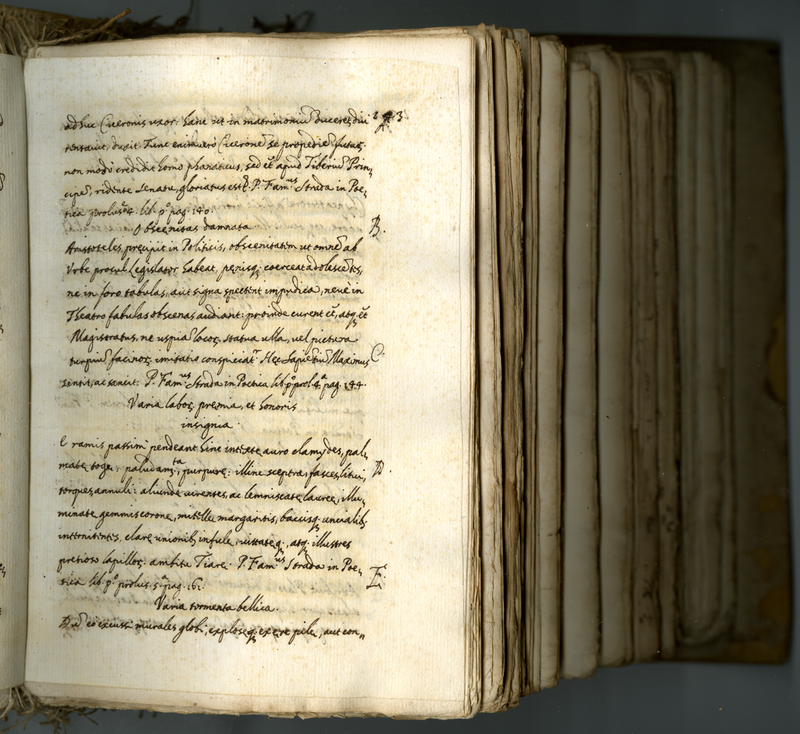 adhuc Ciceronis uxor: hanc sit in matrimoniũ ducere, diu 243
tentavit, duxit. Tunc enimvero Ciceronẽ se propediẽ futur.
non modò credidit homo phanaticus, sed ẽt apud Tiberiũ Prin,,
cipẽ, ridente senatu, gloriatus est. P. Famus Strada in Poe,,
tica prolus. 4. lib. po pag. 140.
Obscenitas damnata B.
Aristoteles precipit in Politicis, obscenitatem ut omnẽ ab
Urbe procul Legislator habeat, penisq; coerceat adolescẽtes,
ne in foro tabulas, aut signa spectent impudica, neve in
Theatro fabulas obscenas audiant: proinde curent ẽt, atq; ẽt
Magistratus, ne uspiã locor. statua ulla, vel pictura
turpiũ facinor. imitatio conspiciatr. Hec sapiẽtiũ Maximus C.
sentit, ac sancit. P. Famus Strada in Poetica lib. po prol. 4a pag. 144.
Varia labor. premia, et honoris
insignia.
E ramis passim pendeant hinc intexte auro clamydes, pal,,
mate toge, paludamta, purpure: illinc sceptra, fasces, litui, D.
torques, annuli: aliunde virentes, ac lemniscate lauree, illu,,
minate gemmis corone, mitelle margaritis, baccisq; uncialib.
internitentes, clare unionib. infule, vittateq., atq. illustres
pretioso lapillor. ambitu Tiare. P. Famus Strada in Poe,,
tica lib. po prolus. 5a pag. 161. E.
Varia tormenta bellica.
Dũ eò excussi murales globi, exploseq; ex ere pile, aut con,,